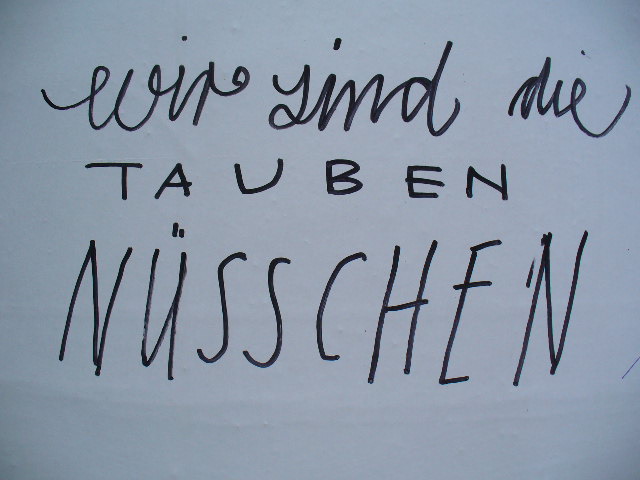 wir sind die
TAUBEN
NÜSSCHEN